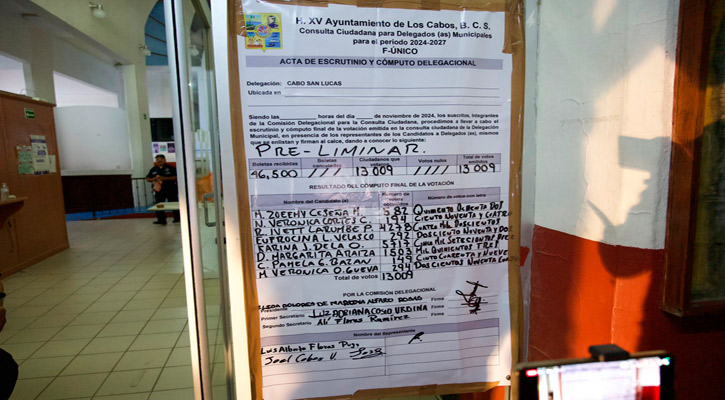 H. XV Ayuntamiento de Los Cabos, B. C. S.
Consulta Ciudadana para Delegados (as) Municipales
para el periodo 2024-2027
F-ÚNICO
ACTA DE ESCRUTINIO Y CÓMPUTO DELEGACIONAL
Delegación: CABO SAN LUCAS
Ubicada en
Siendo las horas del día de noviembre de 2024, los suscritos, integrantes
de la Comisión Delegacional para la Consulta Ciudadana, procedimos a llevar a cabo el
escrutinio y cómputo final de la votación emitida en la consulta ciudadana de la Delegación
Municipal, en presencia de los representantes de los Candidatos a Delegados (as) que
se enlistan y firman al calce, dando a conocer lo siguiente:
PRE-LIMINAR.
Boletas recibidas Boletas canceladas Ciudadanos que votaron Votos nulos Total de votos emitidos
46,500 //// 13009 //// 13009
RESULTADO DEL CÓMPUTO FINAL DE LA VOTACIÓN
Nombre del Candidato(a) Número de votos Número de votos con letra
M. ZOEEHY CESEÑA M. 582 QUINIENTO OCHENTA DOS
N. VERONICA CORTES C. 194 CIENTO NOVENTA Y CUATRO
R. IVETT LARUMBE P. 4278 CUATRO MIL DOSCIENTOS
EUFROCINA L. VELASCO 292 DOSCIENTO NOVENTA Y DOS
FARINA J. DELA O. 5717 CINCO MIL SETECIENTOS
D. MARGARITA ARAIZA 1503 MIL QUINIENTOS TRES
C. PAMELA G. BAZAN 149 CIENTO CUARENTA Y NUEVE
H. VERONICA O. GUEVA. 294 DOSCIENTOS NOVENTA
Total de votos: 13009
POR LA COMISIÓN DELEGACIONAL
Presidente DOLORES DE MADEDIA ALFARO Firma
Primer Secretario LUZ ADRIANA COSIO URDINA Firma
Segundo Secretario Ali Flores Ramirez Firma
Nombre del Representante
Luis Alberto Flores Puga
Joel Cobos U.